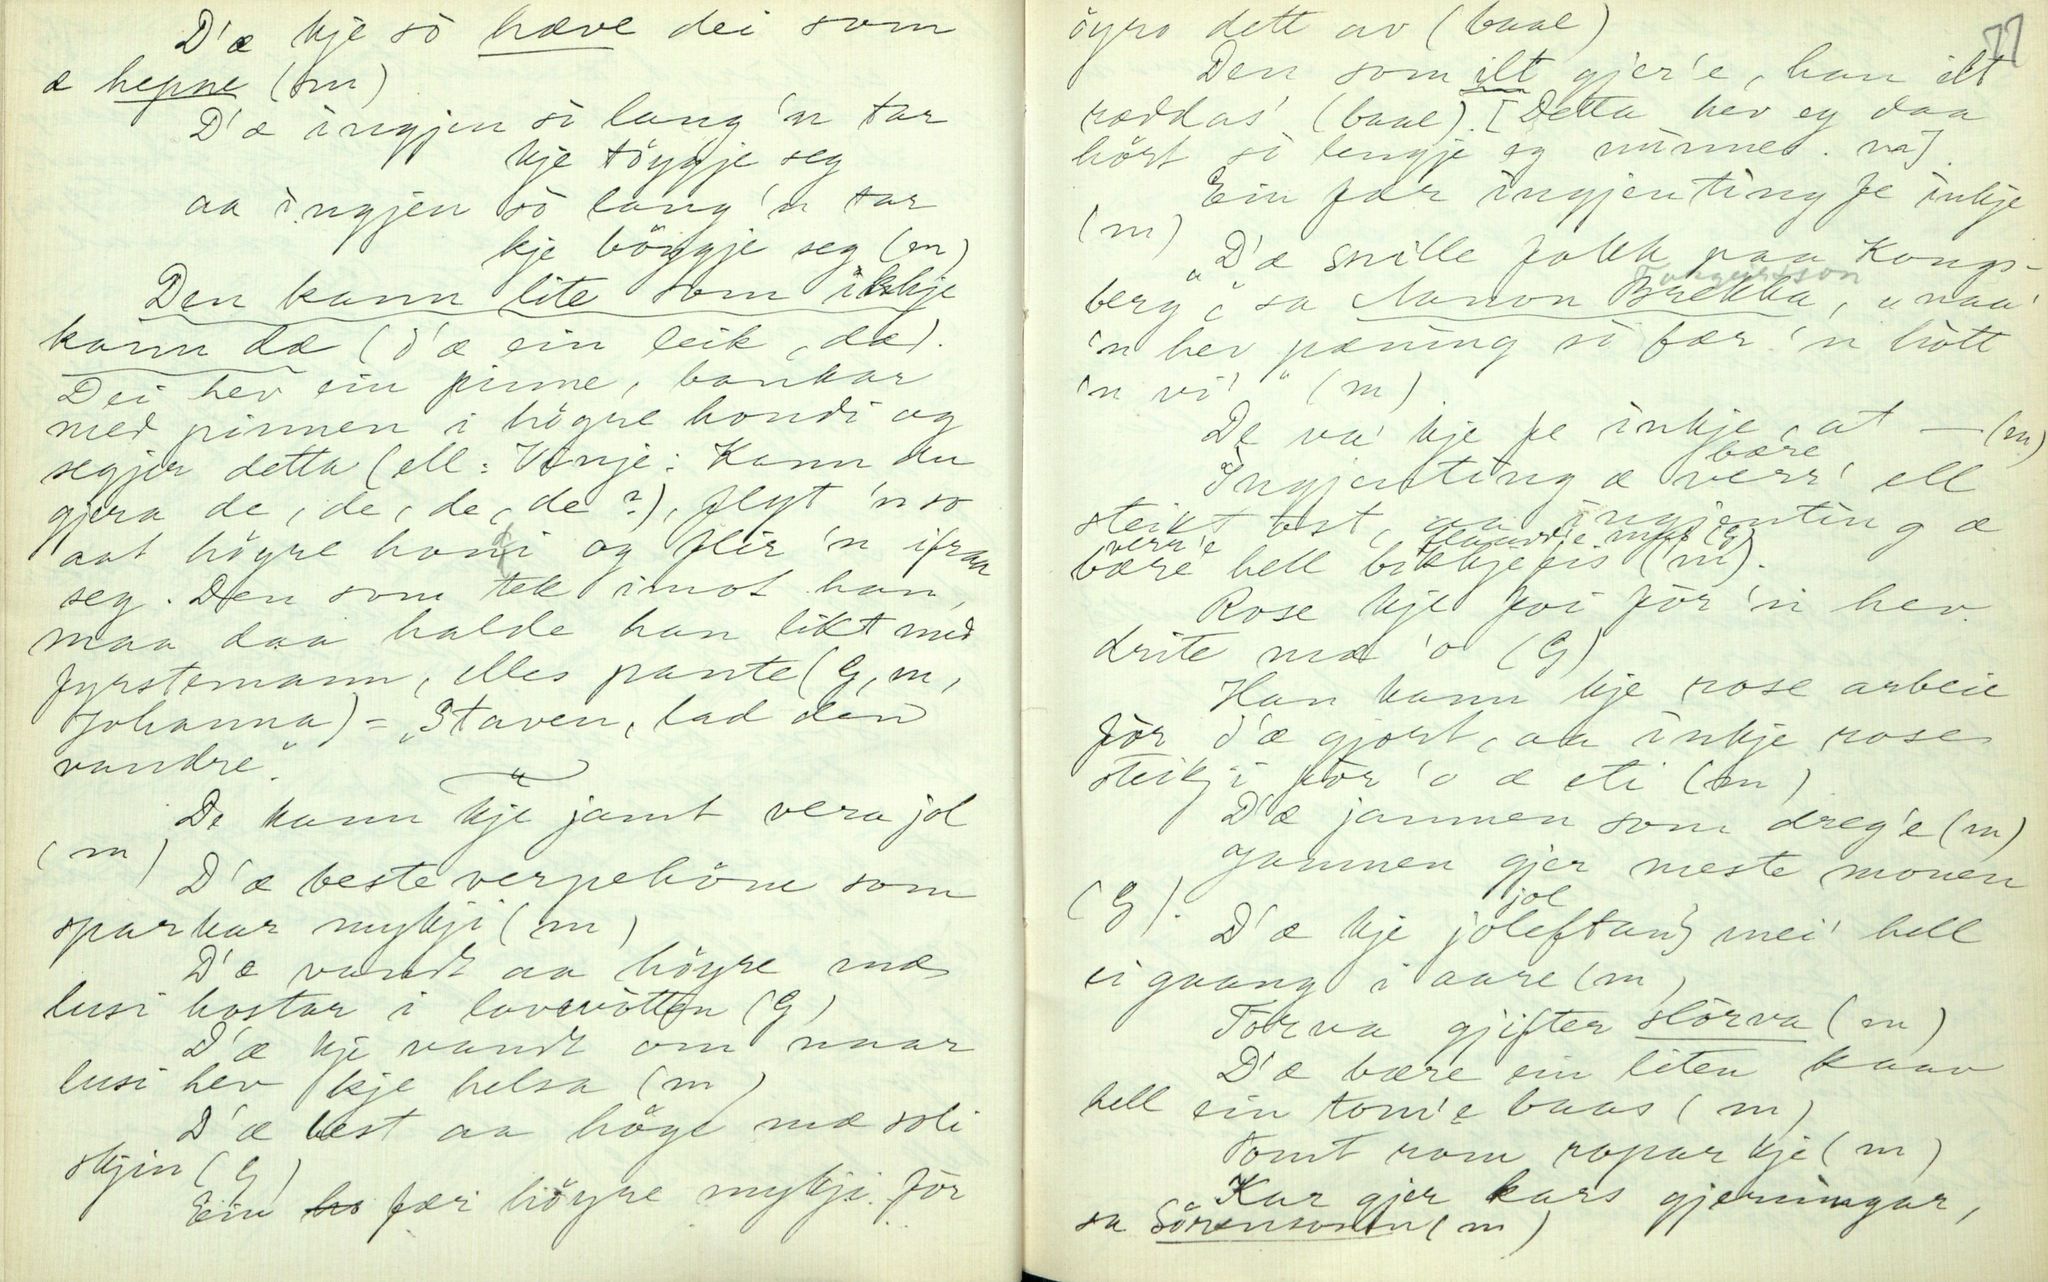 D'æ kje sò hæve dei som
æ hepne (m)
D'æ ingjen sò lang 'n tar
kje töygje seg
aa ingjen sò lang 'n tar
kje böygje seg (m)
Den kann lite som ikkje
kann dæ (d'æ ein leik, dæ).
Dei hev ein pinne, bankar
med pinnen i högre hondi og
segjer detta (ell: Vinje: Kann du
gjera de, de, de, de?), flyt 'n so
aat högre hondi og flir 'n ifraa
seg. Den som tek imot han,
maa daa halde han likt med
fyrstemann, elles pante (G, m,
Johanna) = "Staven, lad den
vandre."
De kann kje jamt vera jol
(m)
D'æ beste verpehöne som
sparkar mykji (m)
D'æ vandt aa höyre mæ
lusi hostar i lovevötten (G)
D'æ kje vandt om naar
lusi hev kje helsa (m)
D'æ best aa höge mæ soli
skjin (G)
Ein fær höyre mykji för
77
öyro dett av (baae)
Den som ilt gjer'e, han ilt
ræddas' (baae). [Detta hev eg daa
hört sò lengje eg minnes. m].
Ein fær ingjenting fe inkje
(m)
"D'æ snille folkk paa Kongs-
Torgeirsson
berg", sa Aanon Brekka, "naa'
'n hev pæning sò fær 'n bött
'n vi'" (m)
De va' kje fe inkje, at — (m)
bære
Ingjenting æ verr' ell
steikt ost, aa ingjenting æ
verr'e
bære hell bikkjefis (m).
Rose kje før 'n hev
drite mæ 'o (G)
Han kann kje rose arbeie
för d'æ gjort, aa inkje rose
steikji för 'o æ eti (m)
D'æ jamnen som dreg'e (m)
Jamnen gjer meste monen
(G).
jol
D'æ kje joleftan mei' hell
ei gaang i aare (m)
Torva gjifter slorva (m)
D'æ bære ein liten kaav
hell ein tom'e baas (m)
Tomt rom ropar kje (m)
Kar gjer kars gjerningar,
sa Sörensonen (m)